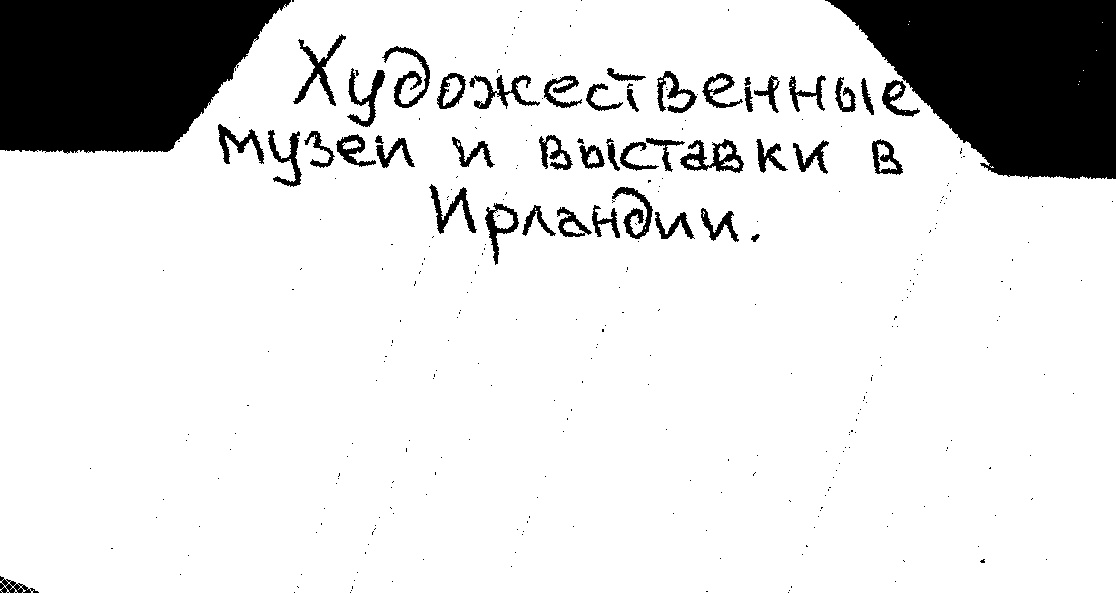 Художественные
музеи и выставки в
Ирландии.